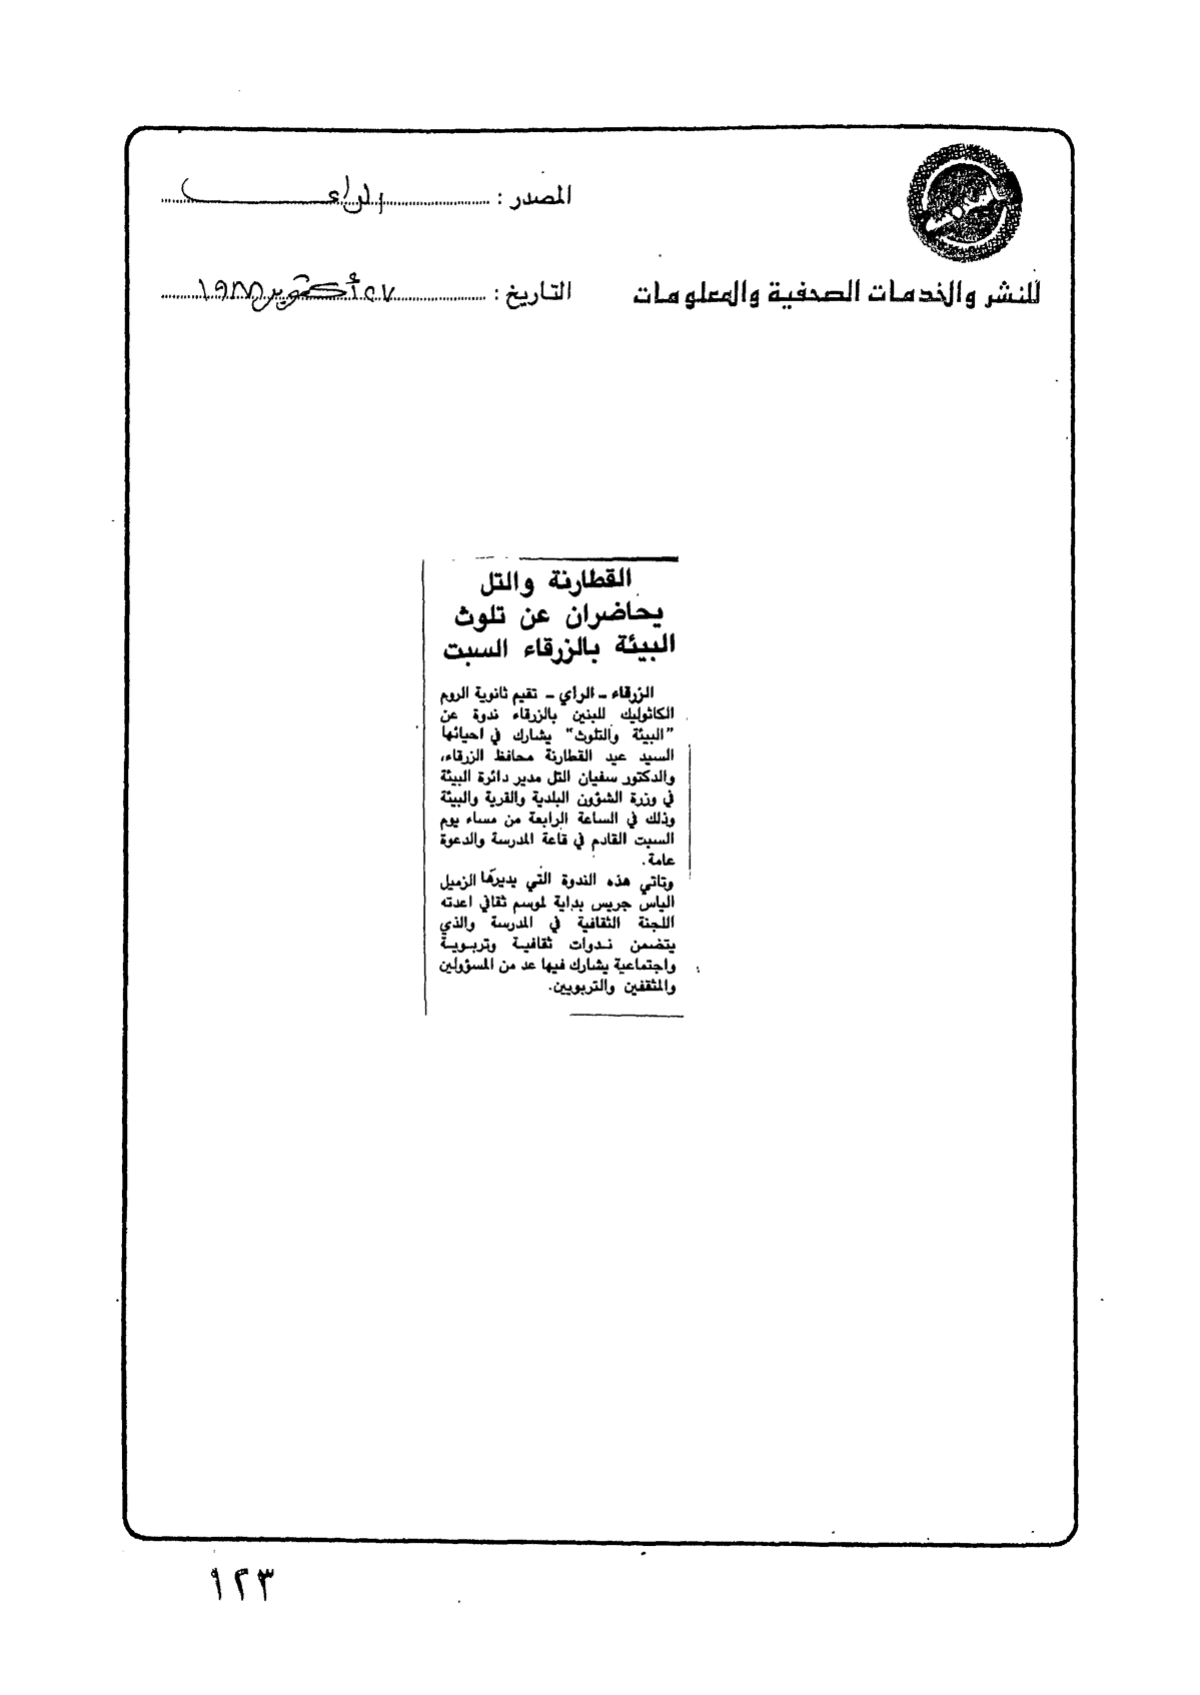 المصدر : الرأى
للنشر والخدمات الصحفية والمعلومات
التاريخ : ٢٧ أكتوبر ١٩٨٨
القطارنة والتل
يحاضران عن تلوث
البيئة بالزرقاء السبت
الزرقاء ـ الرأي ـ تقيم ثانوية الروم
الكاثوليك للبنين بالزرقاء ندوة عن
"البيئة والتلوث" يشارك في احيائها
السيد عيد القطارنة محافظ الزرقاء،
والدكتور سفيان التل مدير دائرة البيئة
في وزرة الشؤون البلدية والقرية والبيئة
وذلك في الساعة الرابعة من مساء يوم
السبت القادم في قاعة المدرسة والدعوة
عامة.
وتاتي هذه الندوة التي يديرها الزميل
الياس جريس بداية لموسم ثقافي اعدته
اللجنة الثقافية في المدرسة والذي
يتضمن ندوات ثقافية وتربوية
واجتماعية يشارك فيها عد من المسؤولين
والمثقفين والتربويين.
١٢٣